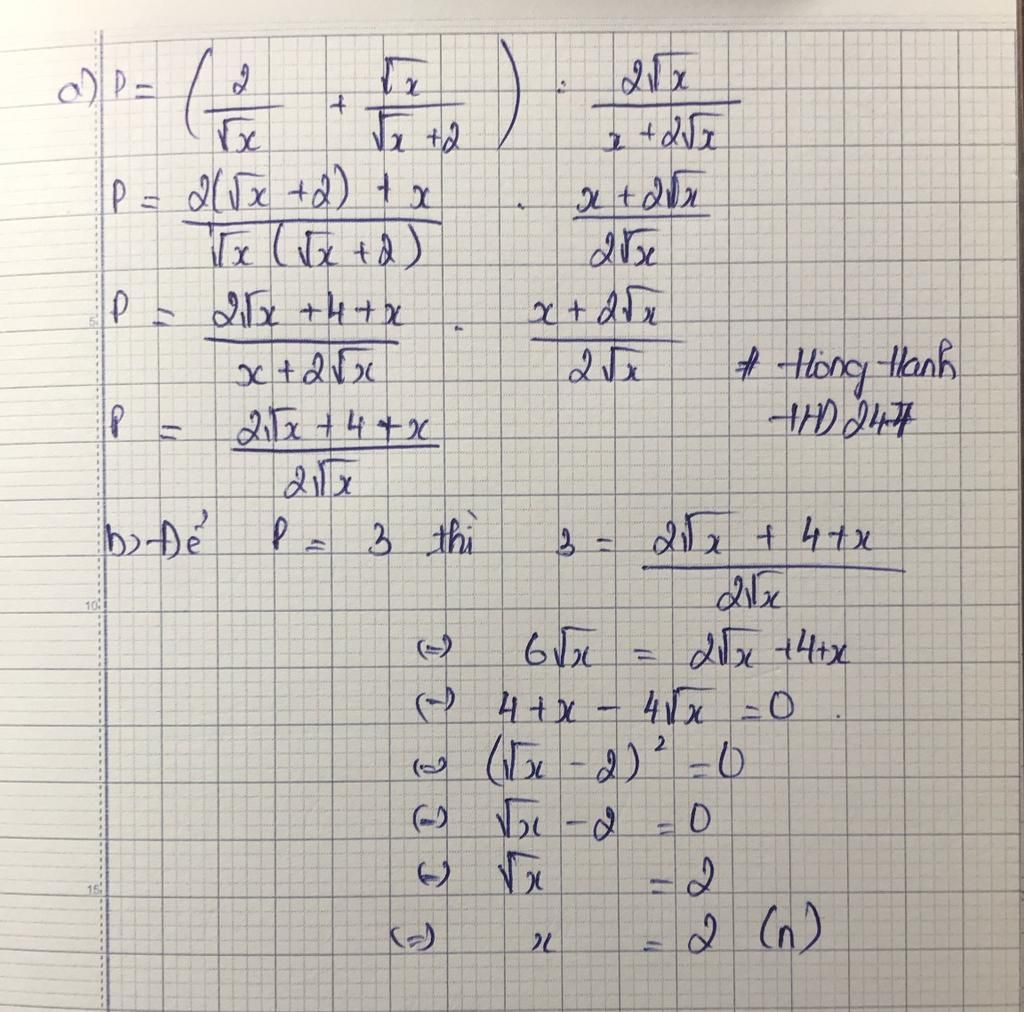 a) P = ( 2/√x + √x/(√x + 2) ) : 2√x/(x + 2√x)
P = (2(√x + 2) + x)/(√x (√x + 2)) . (x + 2√x)/(2√x)
P = (2√x + 4 + x)/(x + 2√x) . (x + 2√x)/(2√x)
# Hồng Hanh
HD 247
P = (2√x + 4 + x)/(2√x)
b) Để P = 3 thì 3 = (2√x + 4 + x)/(2√x)
(=) 6√x = 2√x + 4 + x
(=) 4 + x - 4√x = 0
(=) (√x - 2)² = 0
(=) √x - 2 = 0
(=) √x = 2
(=) x = 2 (n)